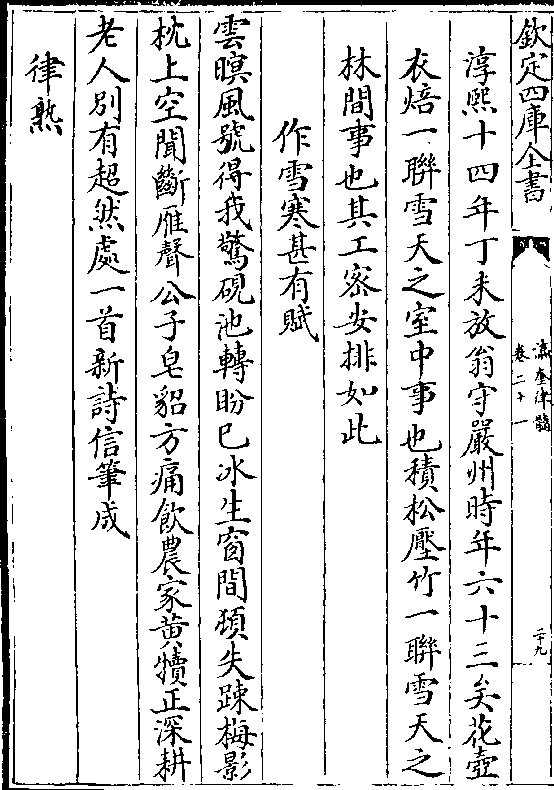 欽定四庫全書
瀛奎律髓
卷二十一
二十九
淳熙十四年丁未放翁守嚴州時年六十三矣花壺
衣焙一聯雪天之室中事也積松壓竹一聯雪天之
林間事也其工密安排如此
作雪寒甚有賦
雲暝風號得我驚硯池轉盼已冰生窗間頓失踈梅影
枕上空聞斷雁聲公子皂貂方痛飲農家黄犢正深耕
老人别有超然處一首新詩信筆成
律熟